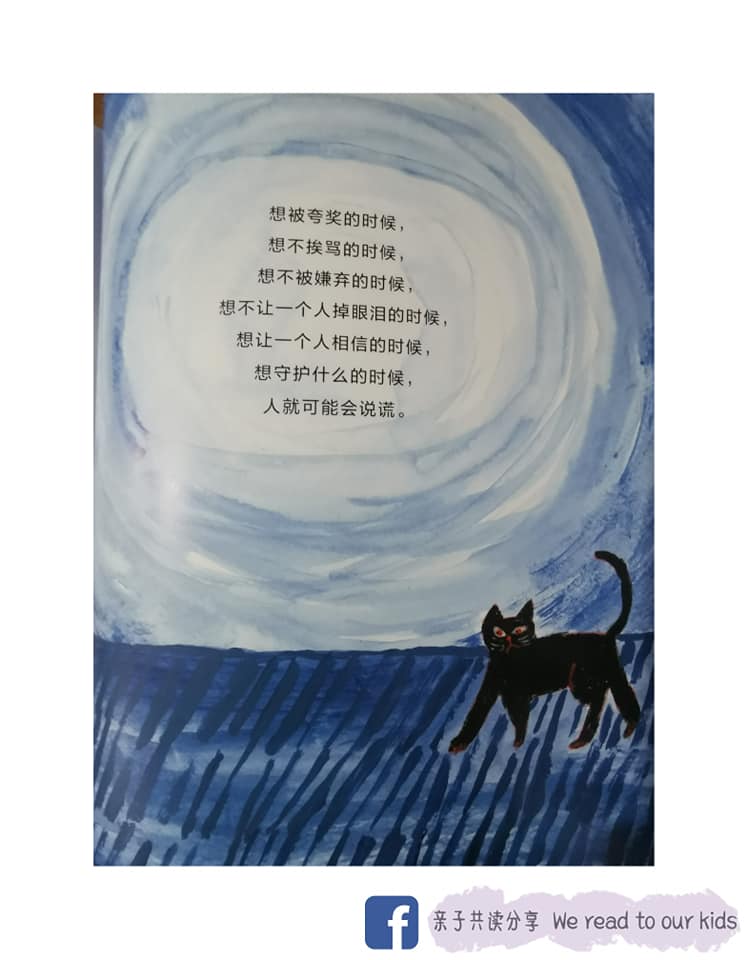 想被夸奖的时候，
想不挨骂的时候，
想不被嫌弃的时候，
想不让一个人掉眼泪的时候，
想让一个人相信的时候，
想守护什么的时候，
人就可能会说谎。
f 亲子共读分享 We read to our kids